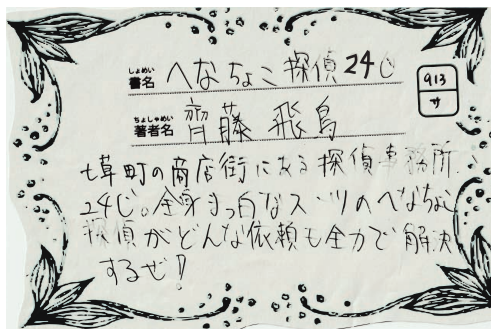 しょめい
書名 へなちょこ探偵24じ
913
サ
ちょしゃめい
著者名 齊藤飛鳥
七草町の商店街にある探偵事務所
24じ。全身まっ白なスーツのへなちょこ
探偵がどんな依頼も全力で解決
するぜ!